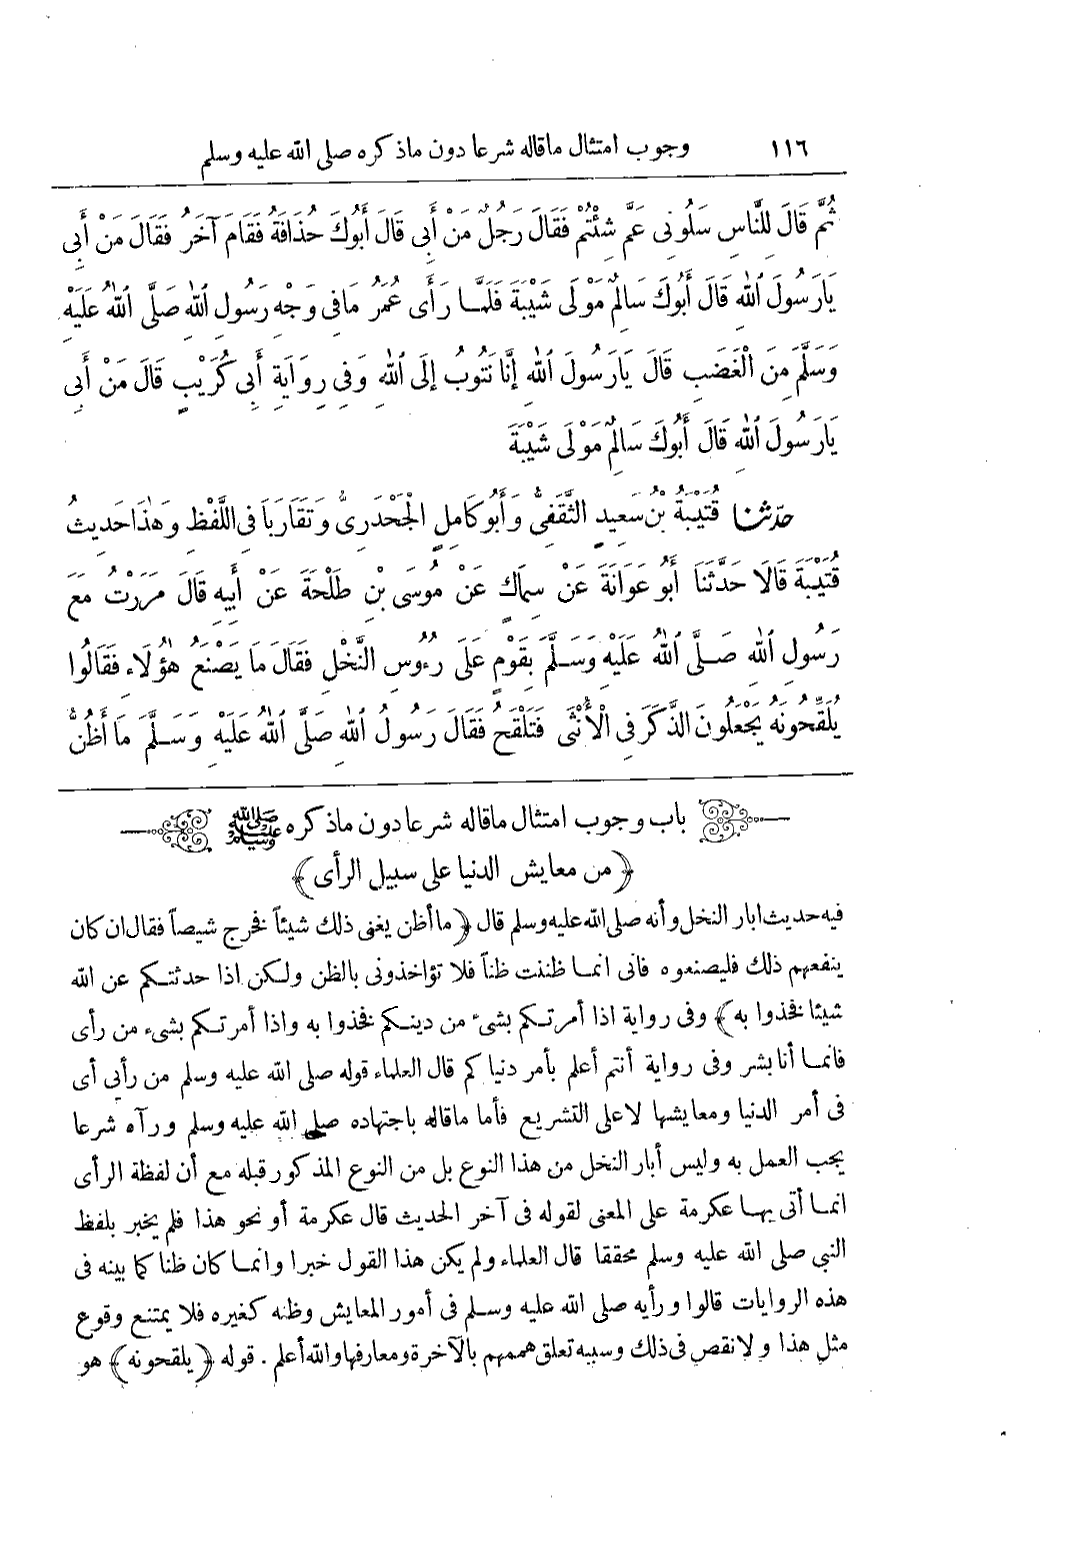 ١١٦ وجوب امتثال ماقاله شرعا دون ماذكره صلى الله عليه وسلم
ثُمَّ قَالَ لِلنَّاسِ سَلُونِى عَمَّ شِئْتُمْ فَقَالَ رَجُلٌ مَنْ أَبِى قَالَ أَبُوكَ حُذَافَةُ فَقَامَ آخَرُ فَقَالَ مَنْ أَبِى
يَارَسُولَ اللهِ قَالَ أَبُوكَ سَالِمٌ مَوْلَى شَيْبَةَ فَلَمَّا رَأَى عُمَرُ مَافِى وَجْهِ رَسُولِ اللهِ صَلَّى اللهُ عَلَيْهِ
وَسَلَّمَ مِنَ الْغَضَبِ قَالَ يَارَسُولَ اللهِ إِنَّا نَتُوبُ إِلَى اللهِ وَفِى رِوَايَةِ أَبِى كُرَيْبٍ قَالَ مَنْ أَبِى
يَارَسُولَ اللهِ قَالَ أَبُوكَ سَالِمٌ مَوْلَى شَيْبَةَ
حدّثنا قُتَيْبَةُ بْنُ سَعِيدٍ الثَّقَفِىُّ وَأَبُو كَامِلٍ الْجَحْدَرِىُّ وَتَقَارَبَا فِى اللَّفْظِ وَهٰذَا حَدِيثُ
قُتَيْبَةَ قَالَا حَدَّثَنَا أَبُو عَوَانَةَ عَنْ سِمَاكٍ عَنْ مُوسَى بْنِ طَلْحَةَ عَنْ أَبِيهِ قَالَ مَرَرْتُ مَعَ
رَسُولِ اللهِ صَلَّى اللهُ عَلَيْهِ وَسَلَّمَ بِقَوْمٍ عَلَى رُءُوسِ النَّخْلِ فَقَالَ مَا يَصْنَعُ هٰؤُلَاءِ فَقَالُوا
يُلَقِّحُونَهُ يَجْعَلُونَ الذَّكَرَ فِى الْأُنْثَى فَتَلْقَحُ فَقَالَ رَسُولُ اللهِ صَلَّى اللهُ عَلَيْهِ وَسَلَّمَ مَا أَظُنُّ
باب وجوب امتثال ماقاله شرعا دون ماذكره ﷺ
﴿من معايش الدنيا على سبيل الرأى﴾
فيه حديث ابار النخل وأنه صلى الله عليه وسلم قال ﴿ما أظن يغنى ذلك شيئاً فخرج شيصاً فقال ان كان
ينفعهم ذلك فليصنعوه فانى انما ظننت ظناً فلا تؤاخذونى بالظن ولكن اذا حدثتكم عن الله
شيئا فخذوا به﴾ وفى رواية اذا أمرتكم بشىء من دينكم فخذوا به واذا أمرتكم بشىء من رأى
فانما أنا بشر وفى رواية أنتم أعلم بأمر دنياكم قال العلماء قوله صلى الله عليه وسلم من رأيى أى
فى أمر الدنيا ومعايشها لا على التشريع فأما ماقاله باجتهاده صلى الله عليه وسلم ورآه شرعا
يجب العمل به وليس أبار النخل من هذا النوع بل من النوع المذكور قبله مع أن لفظة الرأى
انما أتى بها عكرمة على المعنى لقوله فى آخر الحديث قال عكرمة أو نحو هذا فلم يخبر بلفظ
النبى صلى الله عليه وسلم محققا قال العلماء ولم يكن هذا القول خبرا وانما كان ظنا كما بينه فى
هذه الروايات قالوا ورأيه صلى الله عليه وسلم فى أمور المعايش وظنه كغيره فلا يمتنع وقوع
مثل هذا ولا نقص فى ذلك وسببه تعلق هممهم بالآخرة ومعارفها والله أعلم . قوله ﴿يلقحونه﴾ هو